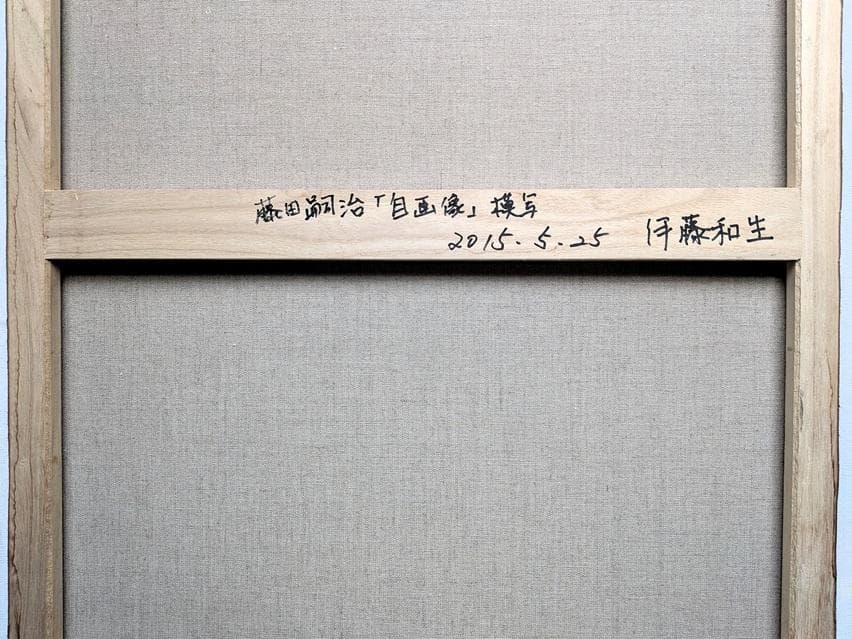 藤田嗣治「自画像」模写
2015.5.25 伊藤和生